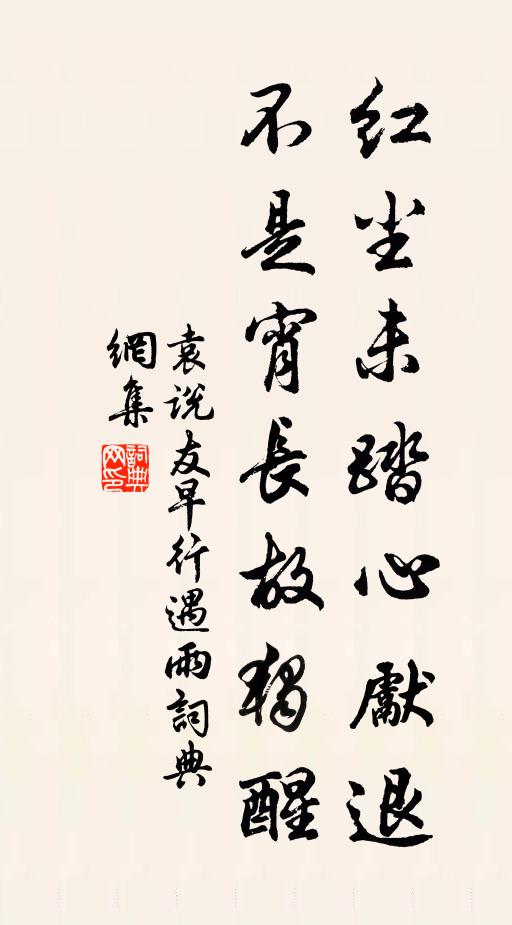 红尘未踏心献退
不是宵长故独醒
袁说友早行遇雨詞典
網集
詞典网印